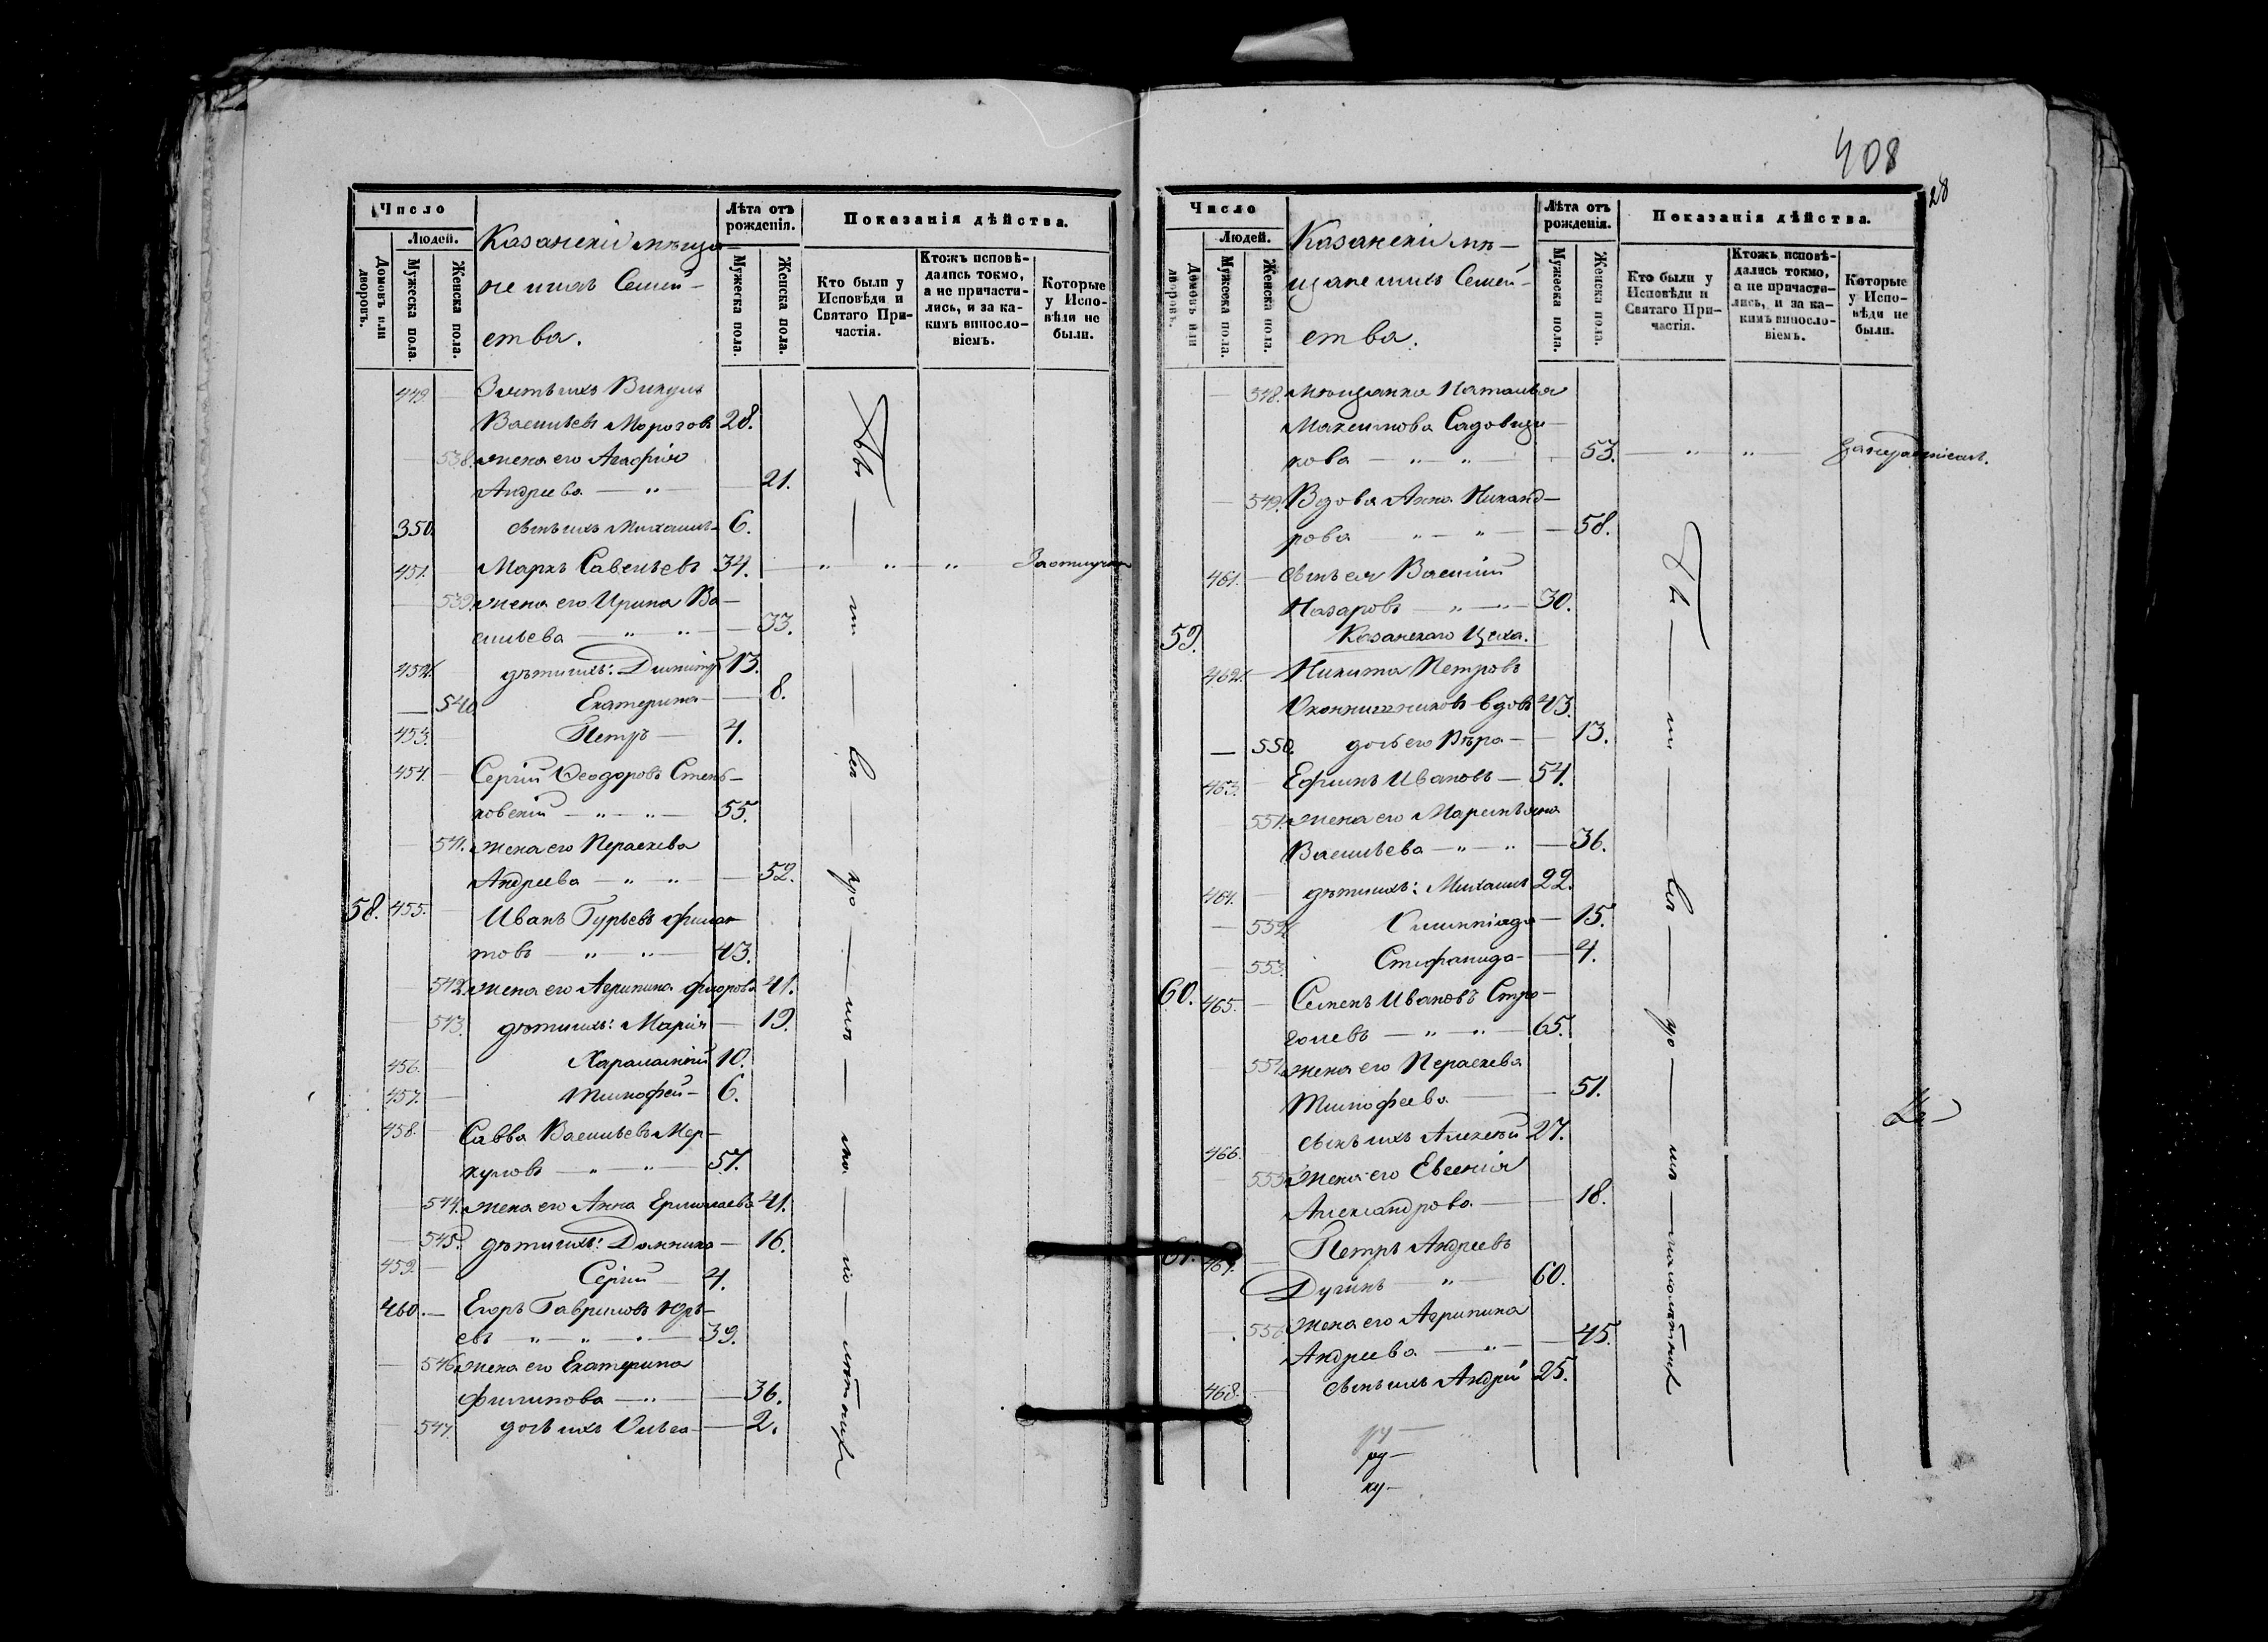 Число
Людей.
Домовъ или дворовъ.
Мужеска пола.
Женска пола.
Казанскіи мѣща-
не и ихъ Семей-
ства.
Лѣта отъ рожденія.
Мужеска пола.
Женска пола.
Показанія дѣйства.
Кто были у Исповѣди и Святаго Причастія.
Ктожъ исповѣдались токмо, а не причастились, и за какимъ винословіемъ.
Которые у Исповѣди не были.
449.
Васильевъ Морозовъ 28.
538. жена его Агафія
Андреева — " — 21.
350. сынъ ихъ Михаилъ 6.
451. Маркъ Савельевъ 34. — " — " — " За отлучкою
539. жена его Ирина Ва-
сильева — " — " — 33.
452. дѣти ихъ: Димитрій 13.
540. Екатерина — 8.
453. Петръ — 4.
454. Сергій Ѳеодоровъ Стень-
ковскій — " — " — 55.
541. жена его Параскева
Андреева — " — " — 52.
58. 455. Иванъ Гурьевъ Филат-
товъ — " — " — 43.
542. жена его Агрипина Флорова 41.
543. дѣти ихъ: Марія — 19.
456. Харалампій 10.
457. Тимофей — 6.
458. Савва Васильевъ Мер-
куловъ — " — " — 57.
544. жена его Анна Ермолаева 41.
545. дѣти ихъ: Домника — 16.
459. Сергій — 4.
460. — Егоръ Гавриловъ Юрь-
евъ — " — " — 39.
546. жена его Екатерина
Филипова — " — 36.
547. дочь ихъ Ольга — 2.
408
28
Число
Людей.
Домовъ или дворовъ.
Мужеска пола.
Женска пола.
Казанскіи мѣ-
щане и ихъ Семей-
ства.
Лѣта отъ рожденія.
Мужеска пола.
Женска пола.
Показанія дѣйства.
Кто были у Исповѣди и Святаго Причастія.
Ктожъ исповѣдались токмо, а не причастились, и за какимъ винословіемъ.
Которые у Исповѣди не были.
548. мѣщанка Наталья
Максимова Садовщи-
кова — " — " — 53. — " — " —
549. Вдова Анна Никанд-
рова — " — " — 58.
461. сынъ ея Василій
Назаровъ — " — " — 30.
59. Казанскаго Цеха.
462. Никита Петровъ
Оконнишниковъ вдовъ 43.
550. дочь его Вѣра — 13.
463. Ефимъ Ивановъ — 54.
551. жена его Марѳемьяна
Васильева — " — " — 36.
464. дѣти ихъ: Михаилъ 22.
552. Олимпіада — 15.
553. Стефанида — 4.
60. 465. Семенъ Ивановъ Стро-
голевъ — " — " — 65.
554. жена его Параскева
Тимофеева — 51.
466. сынъ ихъ Алексѣй 27.
555. жена его Евгенія
Александрова — 18.
61. 467. Петръ Андреевъ
Дугинъ " — 60.
556. жена его Агрипина
Андреева — " — 45.
468. сынъ ихъ Андрей 25.
ру-
ку-